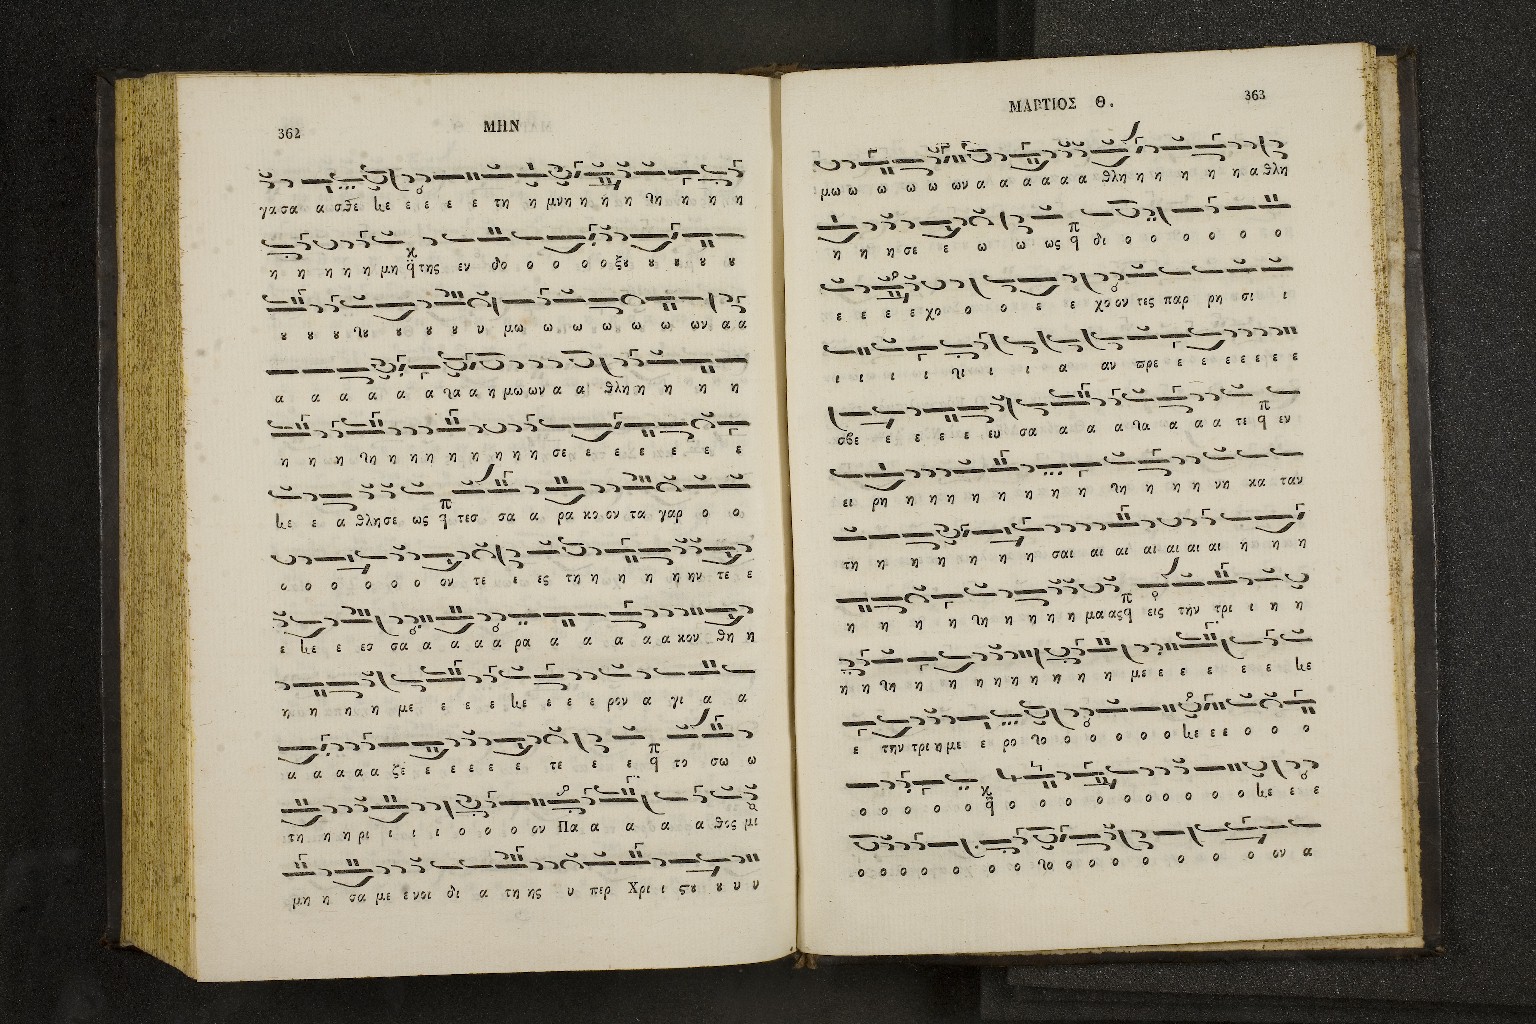 362
ΜΗΝ
γα σα α σβε κε ε ε ε ε τη η μνη η η η λη η η η
η η η η η μη της εν δο ο ο ο ο ξȣ ȣ ȣ ȣ ȣ
ȣ ȣ ȣ λȣ ȣ ȣ ȣ ȣ υ μω ω ω ω ω ω ων α α
α α α α α α λα α η μω ων α α θλη η η η η
η η η λη η η η η η η η η σε ε ε ε ε ε ε
κε ε α θλησε ως τεσ σα α ρα κο ον τα γαρ ο ο
ο ο ο ο ο ο ο ον τε ε ες τη η η η η ην τε ε
ε κε ε εσ σα α α α α ρα α α α α α κον θη η
η η η η με ε ε ε κε ε ε ε ρον α γι α α
α α α α α ζε ε ε ε ε ε τε ε ε το σω ω
τη η η ρι ι ι ι ο ο ο ον Πα α α α α θος μι
μη η σα με ε νοι δι α τη ης υ περ Χρι ι ϛȣ ȣ υ υ
ΜΑΡΤΙΟΣ Θ.
363
μω ω ω ω ω ων α α α α α α θλη η η η η α θλη
η η η σε ε ω ω ως δι ο ο ο ο ο ο
ε ε ε ε χο ο ο ε ε χο ον τες παρ ρη σι ι
ι ι ι ι λι ι ι ι α αν πρε ε ε ε ε ε ε ε
σβε ε ε ε ε ευ σα α α α λα α α α τε εν
ει ρη η η η η η η η η λη η η η νη κα ταν
τη η η η η η η σαι αι αι αι αι αι αι η η η
η η η η λη η η η η μα ας εις την τρι ι η η
η η λη η η η η η η η η με ε ε ε ε ε κε
ε την τρι η με ε ρο λο ο ο ο ο ο κε ε ε ο ο ο
ο ο ο ο ο ο ο ο ο ο ο ο ο ο κε ε ε
ο ο ο ο ο ο λο ο ο ο ο ο ο ο ον α